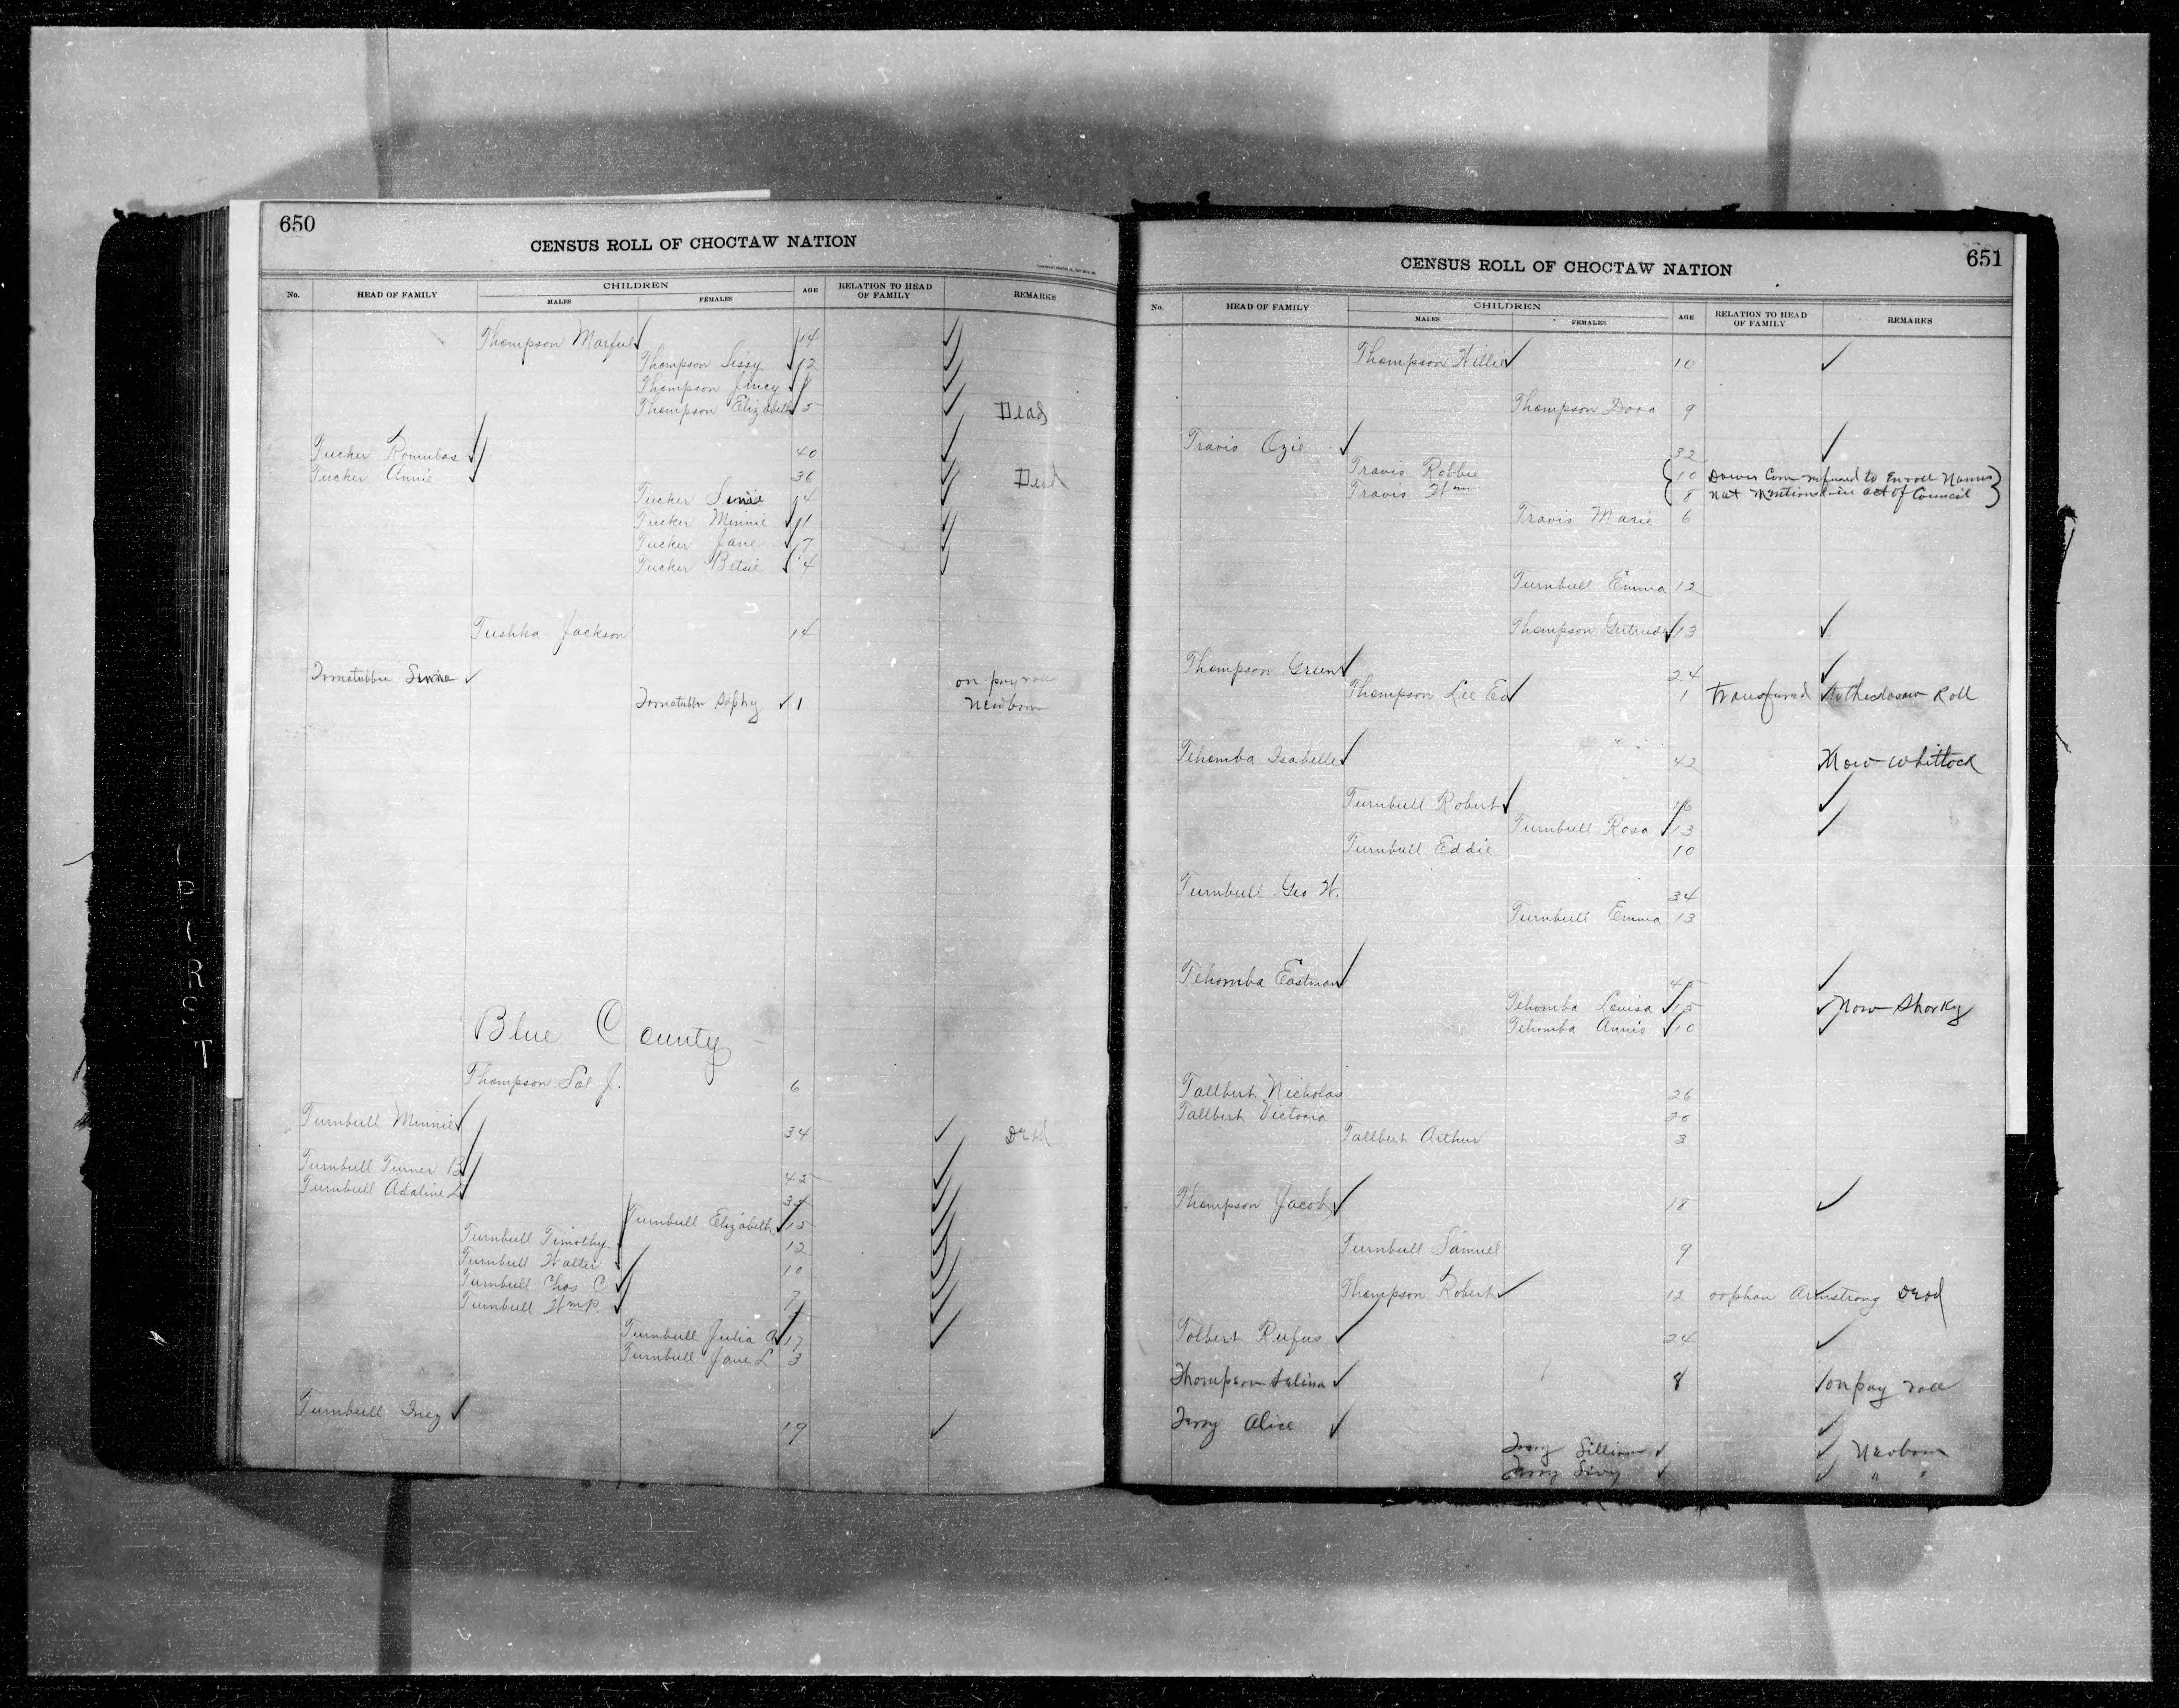 650
CENSUS ROLL OF CHOCTAW NATION
No. HEAD OF FAMILY CHILDREN MALES FEMALES AGE RELATION TO HEAD OF FAMILY REMARKS
Thompson 14
Thompson Sissy 12
Thompson
Thompson Elizabeth 5 Dead
Tucker Romulas 40
Tucker Annie 36 Dead
Tucker 14
Tucker Minnie 11
Tucker Jane 7
Tucker Betsie 4
Tushka Jackson 14
on pay roll
Sophy 1 Newborn
Blue County
Thompson Sol J. 6
Turnbull Minnie 34 Dead
Turnbull Turner B 42
Turnbull Adaline L
Turnbull Elizabeth 15
Turnbull Timothy 12
Turnbull Walter 10
Turnbull Chas C 7
Turnbull Wm P.
Turnbull Julia A 17
Turnbull Jane L 3
Turnbull Inez 19
651
CENSUS ROLL OF CHOCTAW NATION
No. HEAD OF FAMILY CHILDREN MALES FEMALES AGE RELATION TO HEAD OF FAMILY REMARKS
Thompson Willie 10
Thompson Dora 9
Travis Ozie 32
Travis Robbie 10 Dawes Com refused to Enroll Names
Travis Wm 8 not mentioned in act of Council
Travis Marie 6
Turnbull Emma 12
Thompson Gertrude 13
Thompson Green 24
Thompson Lee Ed 1 Transfered Roll
Tehomba Isabelle 42 Now Whittock
Turnbull Robert 16
Turnbull Rosa 13
Turnbull Eddie 10
Turnbull Geo W. 34
Turnbull Emma 13
Tehomba Eastman 45
Tehomba Louisa 15 Now Sharky
Tehomba Annis 10
Tallbert Nicholas 26
Tallbert Victoria 20
Tallbert Arthur 3
Thompson Jacob 18
Turnbull Samuel 9
Thompson Robert 12 oophan Armstrong Dead
Tolbert Rufus 24
Thompson Selina 8 on pay roll
Terry Alice
Terry Lillian Newborn
Terry " "